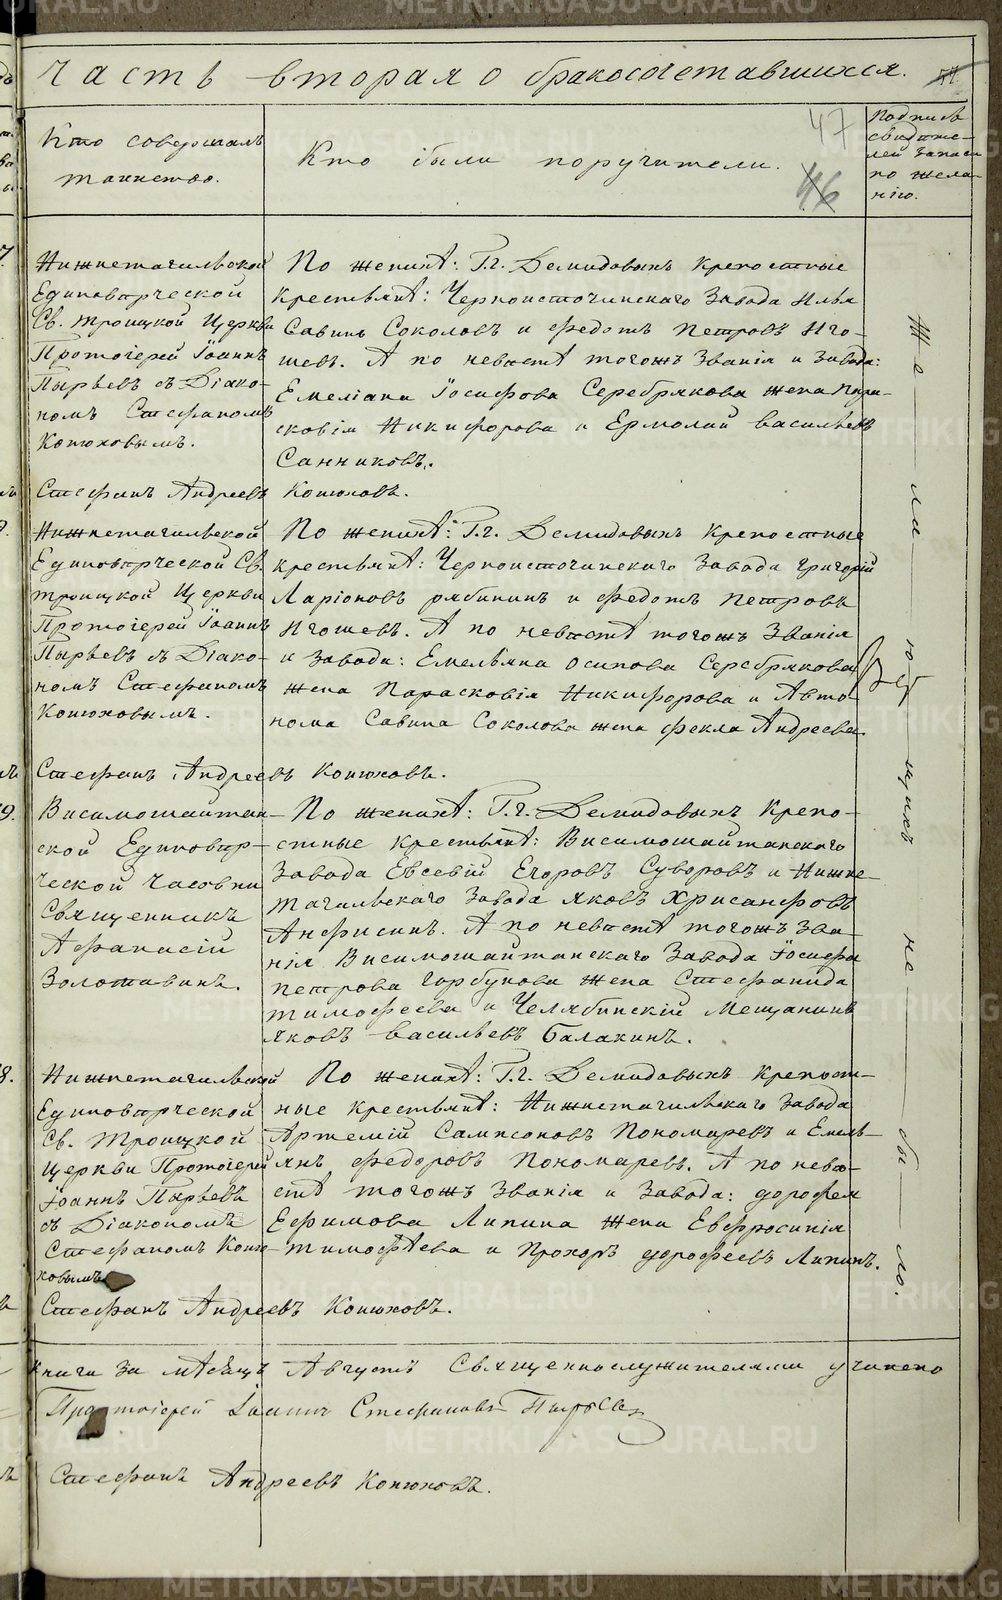 Часть вторая о бракосочетавшихся.
47
46
Кто совершалъ
таинство.
Кто были поручители.
Подпись
свидѣте-
лей записи
по жела-
нію.
Нижнетагильской
Единовѣрческой
Св. Троицкой Церкви
Протоіерей Іоаннъ
Пырьевъ съ Діако-
номъ Стефаномъ
Конюховымъ.
По женихѣ: Г.г. Демидовыхъ крепостные
крестьянѣ: Черноисточинскаго Завода Илья
Савинъ Соколовъ и Федотъ Петровъ Иго-
шевъ. А по невѣстѣ тогожъ званія и завода:
Емеліана Іосифова Серебрякова жена Пара-
сковія Никифорова и Ермолай Васильевъ
Санниковъ.
Стефанъ Андреевъ Конюховъ.
Нижнетагильской
Единовѣрческой Св.
Троицкой Церкви
Протоіерей Іоаннъ
Пырьевъ съ Діако-
номъ Стефаномъ
Конюховымъ.
По женихѣ: Г.г. Демидовыхъ крепостные
крестьянѣ: Черноисточинскаго Завода Григорій
Ларіоновъ Рябининъ и Федотъ Петровъ
Игошевъ. А по невѣстѣ тогожъ званія
и завода: Емельяна Осипова Серебрякова
жена Парасковія Никифорова и Авто-
нома Савина Соколова жена Фекла Андреева.
Стефанъ Андреевъ Конюховъ.
9.
Висимошайтан-
ской Единовѣр-
ческой часовни
Священникъ
Афанасій
Золотавинъ.
По женихѣ: Г.г. Демидовыхъ крепо-
стные крестьянѣ: Висимошайтанскаго
Завода Евсевій Егоровъ Суворовъ и Нижне-
тагильскаго Завода Яковъ Хрисанфовъ
Анфисинъ. А по невѣстѣ тогожъ зва-
нія Висимошайтанскаго Завода Іосифа
Петрова Горбунова жена Стефанида
Тимофеева и Челябинскій Мещанинъ
Яковъ Васильевъ Балакинъ.
8.
Нижнетагильской
Единовѣрческой
Св. Троицкой
Церкви Протоіерей
Іоаннъ Пырьевъ
съ Діакономъ
Стефаномъ Коню-
ховымъ
По женихѣ: Г.г. Демидовыхъ крепост-
ные крестьянѣ: Нижнетагильскаго Завода
Артемій Сампсоновъ Пономаревъ и Емель-
янъ Федоровъ Пономаревъ. А по невѣ-
стѣ тогожъ званія и завода: Дорофея
Ефимова Ляпина жена Евфросинія
Тимофѣева и Прохоръ Дорофеевъ Ляпинъ.
Стефанъ Андреевъ Конюховъ.
Желающихъ не было.
книги за мѣсяцъ Августъ Священнослужителями учинено
Протоіерей Іоаннъ Стефановъ Пырьевъ
Стефанъ Андреевъ Конюховъ.
METRIKI.GASO-URAL.RU